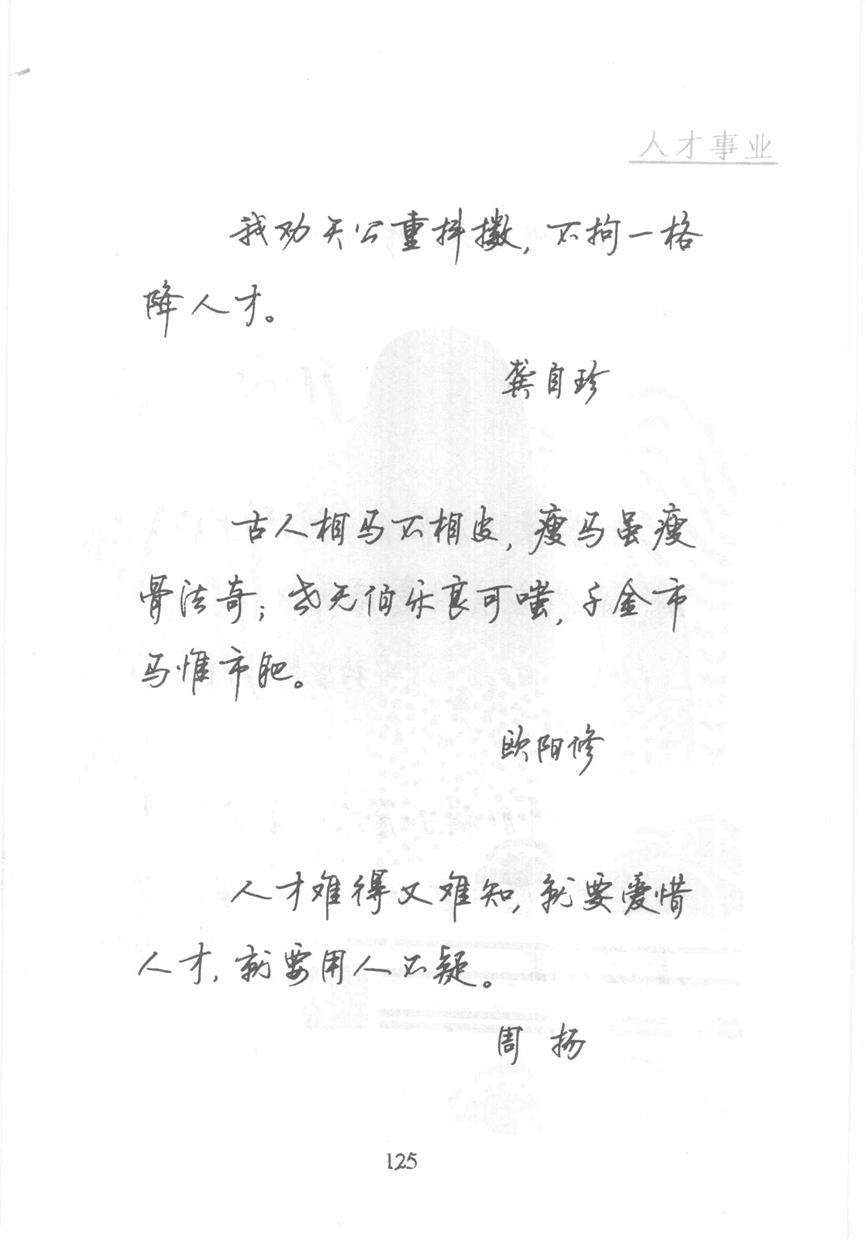 人才事业
我劝天公重抖擞，不拘一格
降人才。
龚自珍
古人相马不相皮，瘦马虽瘦
骨法奇；世无伯乐良可嗤，千金市
马惟市肥。
欧阳修
人才难得又难知，就要爱惜
人才，就要用人不疑。
周扬
125